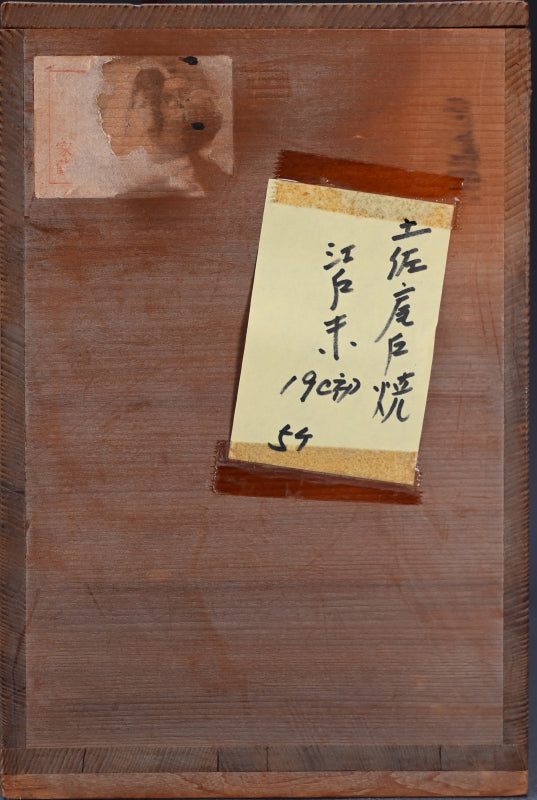 土佐尾戸焼
江戸末
19C初
54